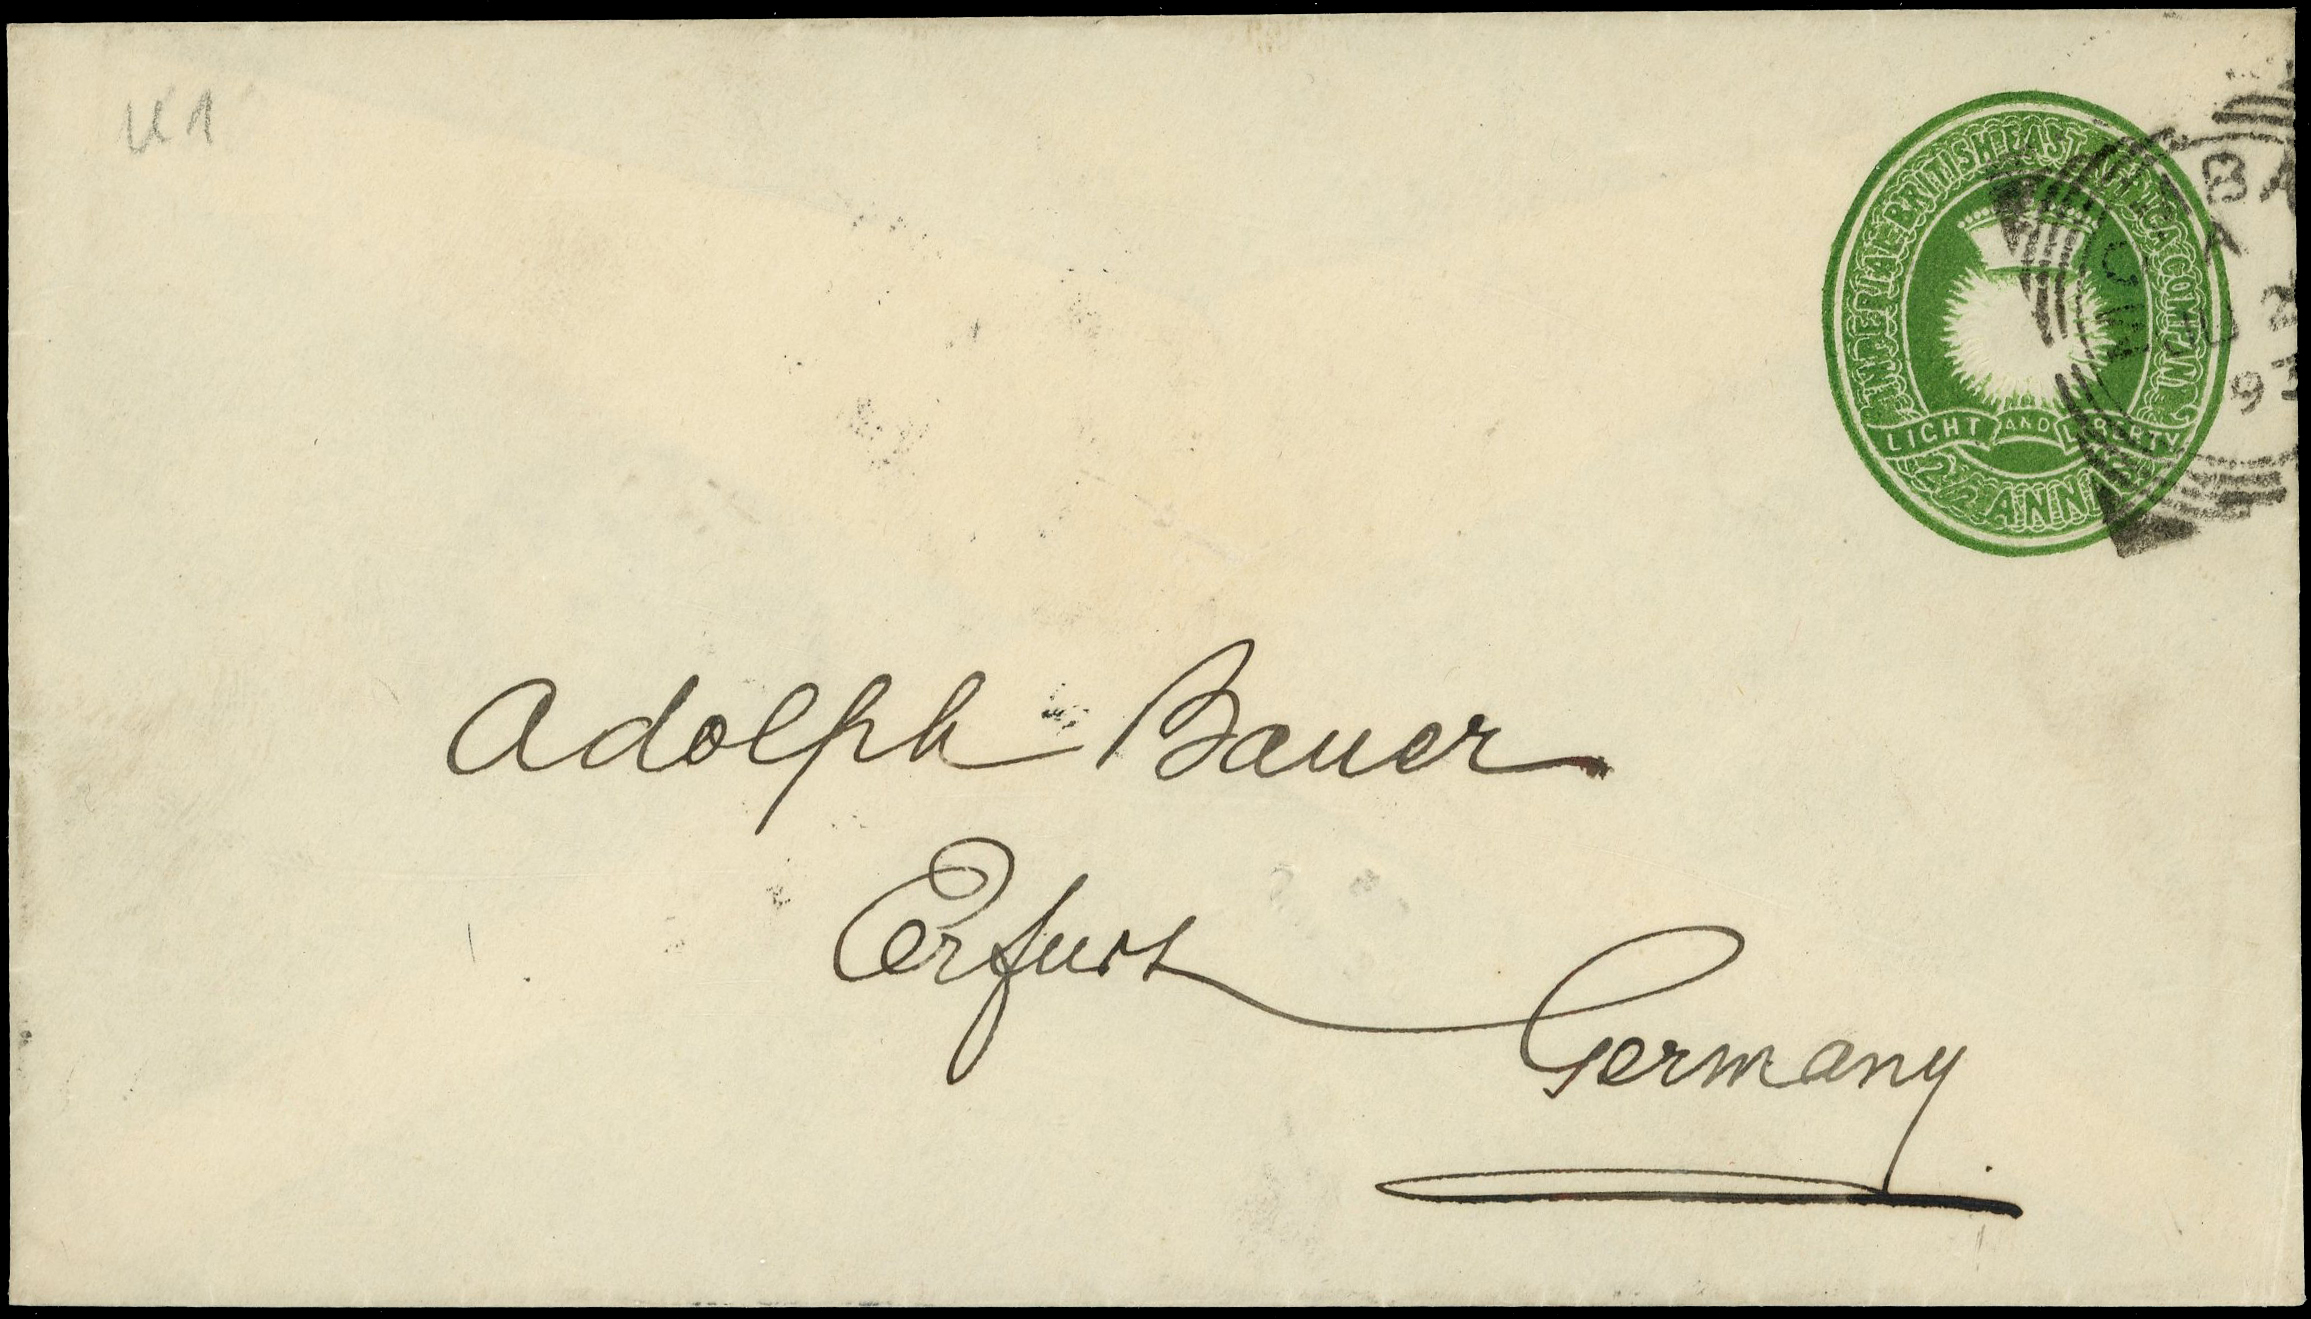 U 1
IMPERIAL BRITISH EAST AFRICA COMPANY
LIGHT AND LIBERTY
2½ ANNAS
BA
A
2
93
Adolph Bauer
Erfurt Germany